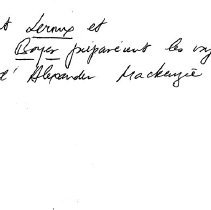 t Leroux et
Boyer préparèrent les vo
d' Alexander Mackenzie